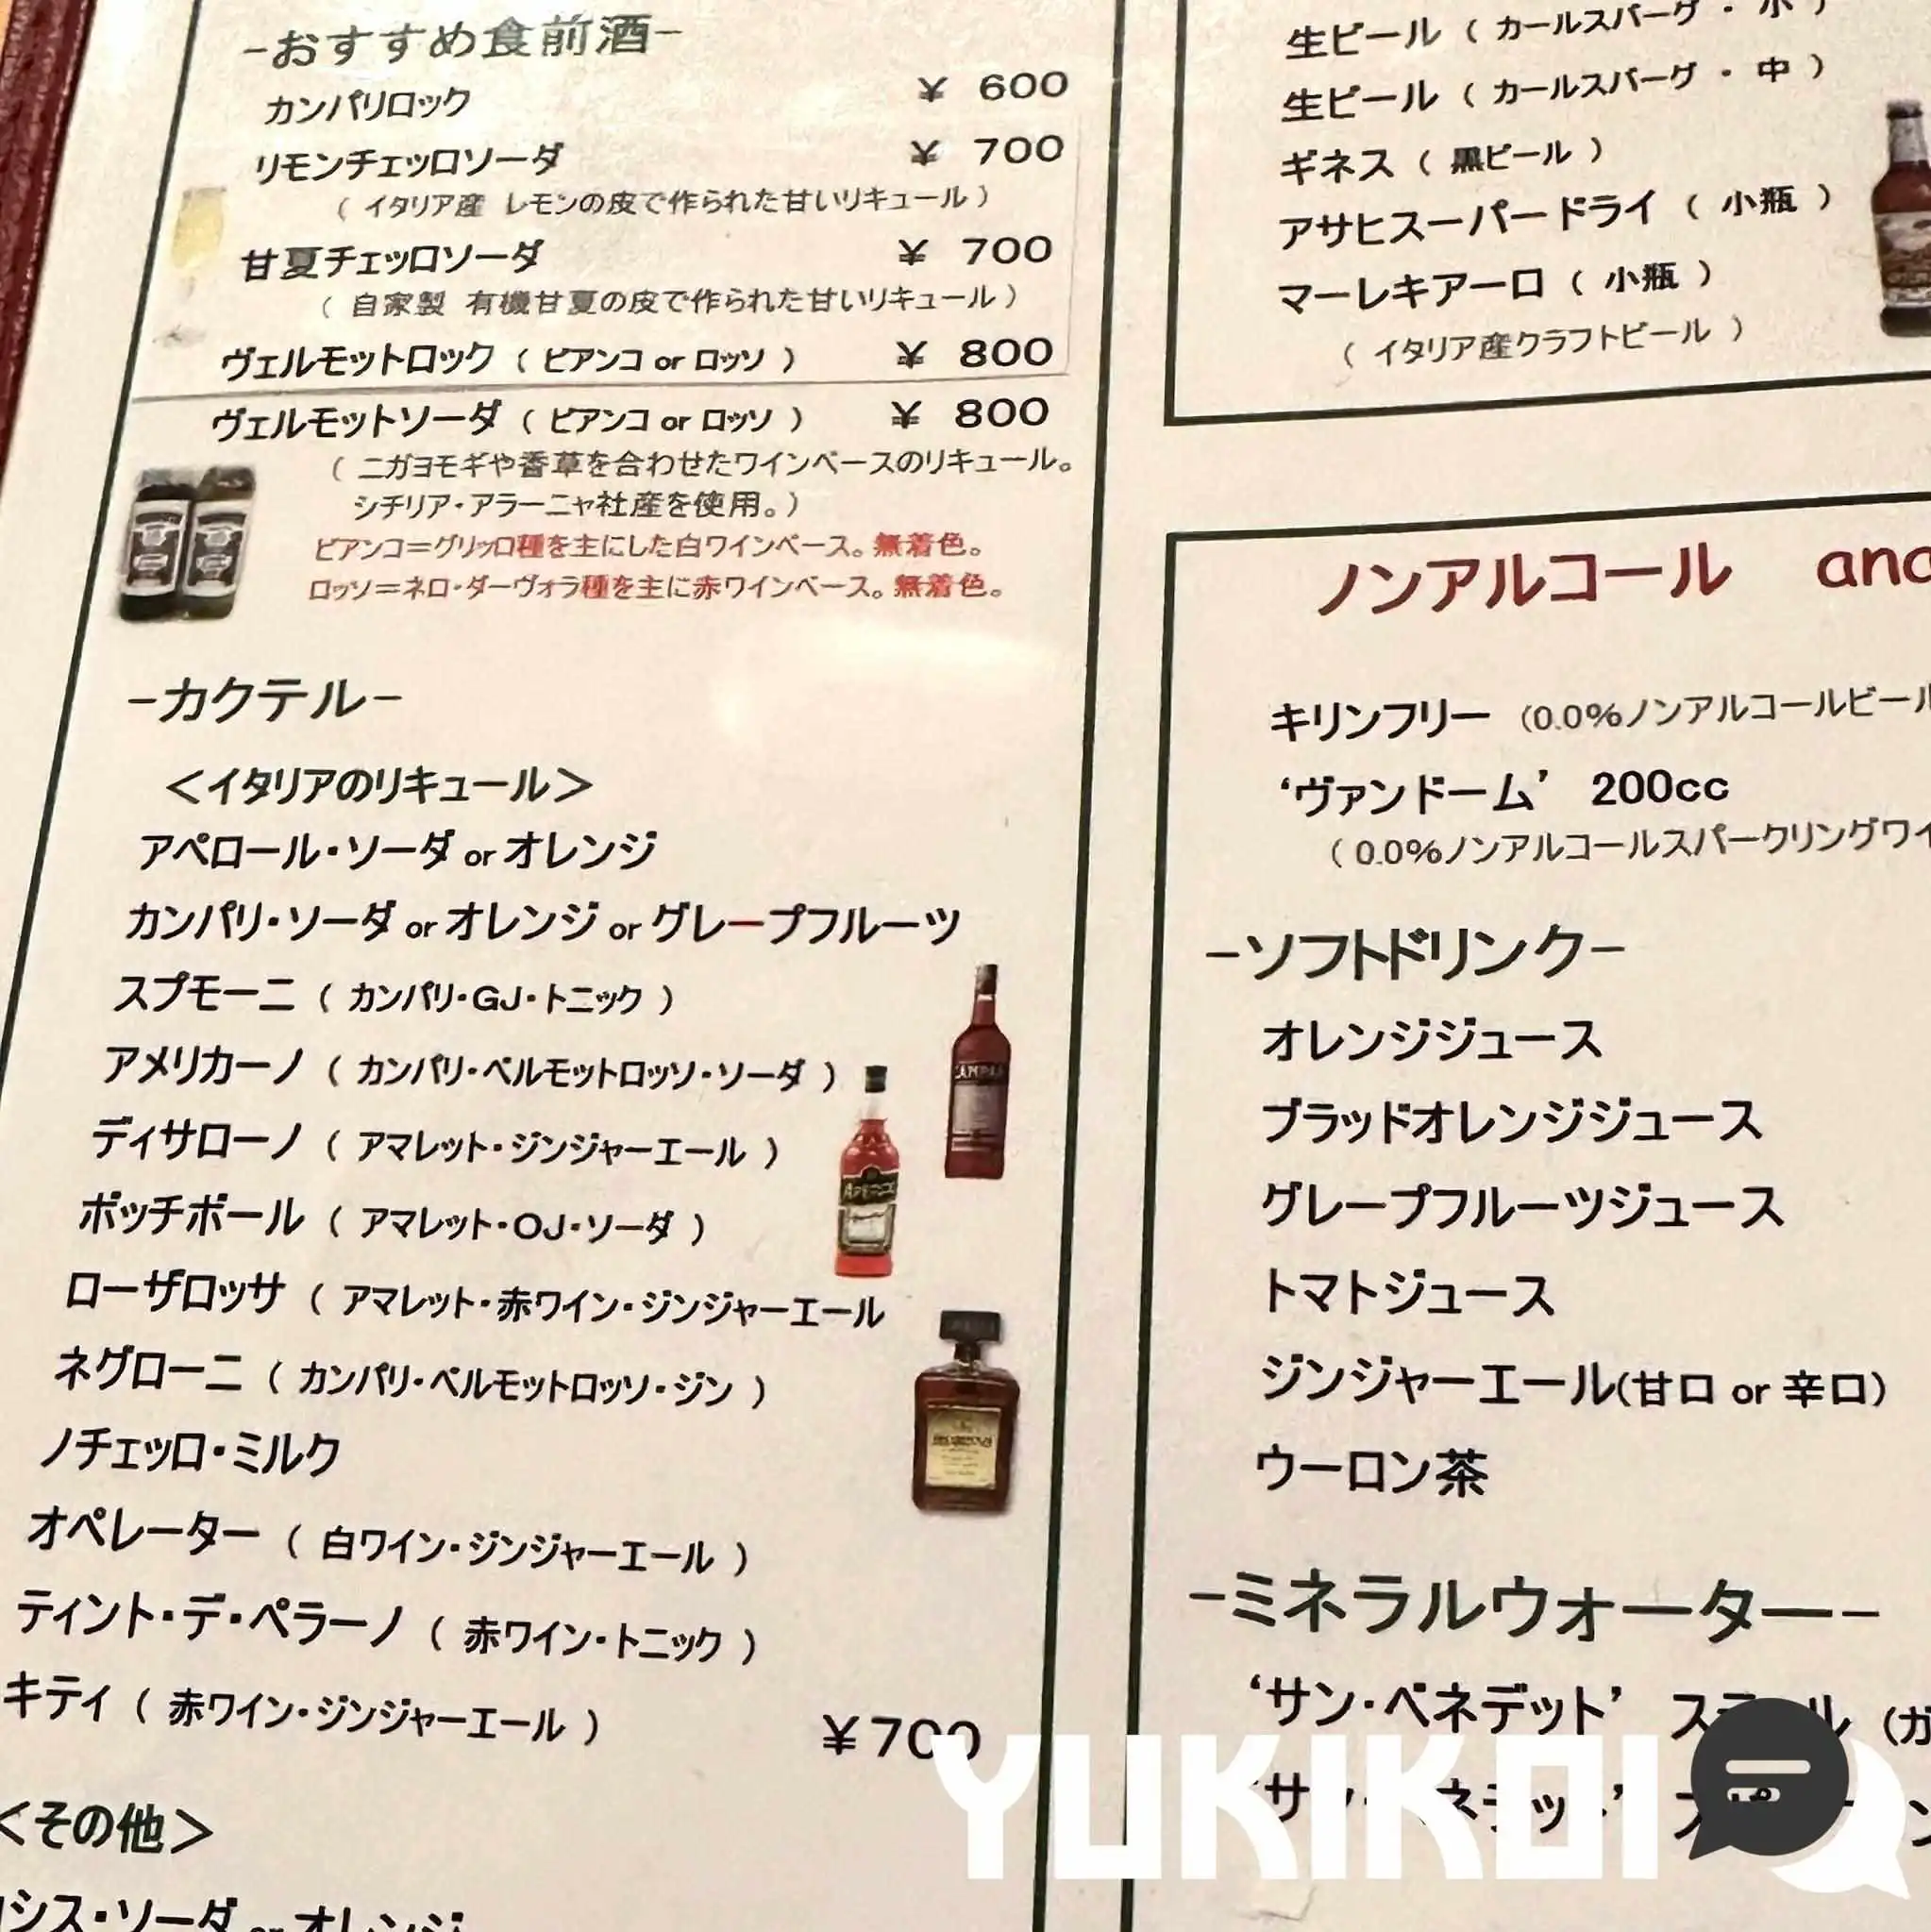 -おすすめ食前酒-
カンパリロック ¥ 600
リモンチェッロソーダ ¥ 700
( イタリア産 レモンの皮で作られた甘いリキュール )
甘夏チェッロソーダ ¥ 700
( 自家製 有機甘夏の皮で作られた甘いリキュール )
ヴェルモットロック ( ビアンコ or ロッソ ) ¥ 800
ヴェルモットソーダ ( ビアンコ or ロッソ ) ¥ 800
( ニガヨモギや香草を合わせたワインベースのリキュール。
シチリア・アラーニャ社産を使用。)
ビアンコ=グリッロ種を主にした白ワインベース。無着色。
ロッソ=ネロ・ダーヴォラ種を主に赤ワインベース。無着色。
-カクテル-
<イタリアのリキュール>
アペロール・ソーダ or オレンジ
カンパリ・ソーダ or オレンジ or グレープフルーツ
スプモーニ ( カンパリ・GJ・トニック )
アメリカーノ ( カンパリ・ベルモットロッソ・ソーダ )
ディサローノ ( アマレット・ジンジャーエール )
ボッチボール ( アマレット・OJ・ソーダ )
ローザロッサ ( アマレット・赤ワイン・ジンジャーエール
ネグローニ ( カンパリ・ベルモットロッソ・ジン )
ノチェッロ・ミルク
オペレーター ( 白ワイン・ジンジャーエール )
ティント・デ・ベラーノ ( 赤ワイン・トニック )
キティ ( 赤ワイン・ジンジャーエール )
¥700
<その他>
シス・ソーダ or オレンジ
CAMPARI
APEROL
生ビール ( カールスバーグ ・ 小 )
生ビール ( カールスバーグ ・ 中 )
ギネス ( 黒ビール )
アサヒスーパードライ ( 小瓶 )
マーレキアーロ ( 小瓶 )
( イタリア産クラフトビール )
ノンアルコール and
キリンフリー (0.0%ノンアルコールビール
‘ヴァンドーム’ 200cc
( 0.0%ノンアルコールスパークリングワイ
-ソフトドリンク-
オレンジジュース
ブラッドオレンジジュース
グレープフルーツジュース
トマトジュース
ジンジャーエール(甘口 or 辛口)
ウーロン茶
-ミネラルウォーター-
‘サン・ベネデット’ (ガ
YUKIKOI